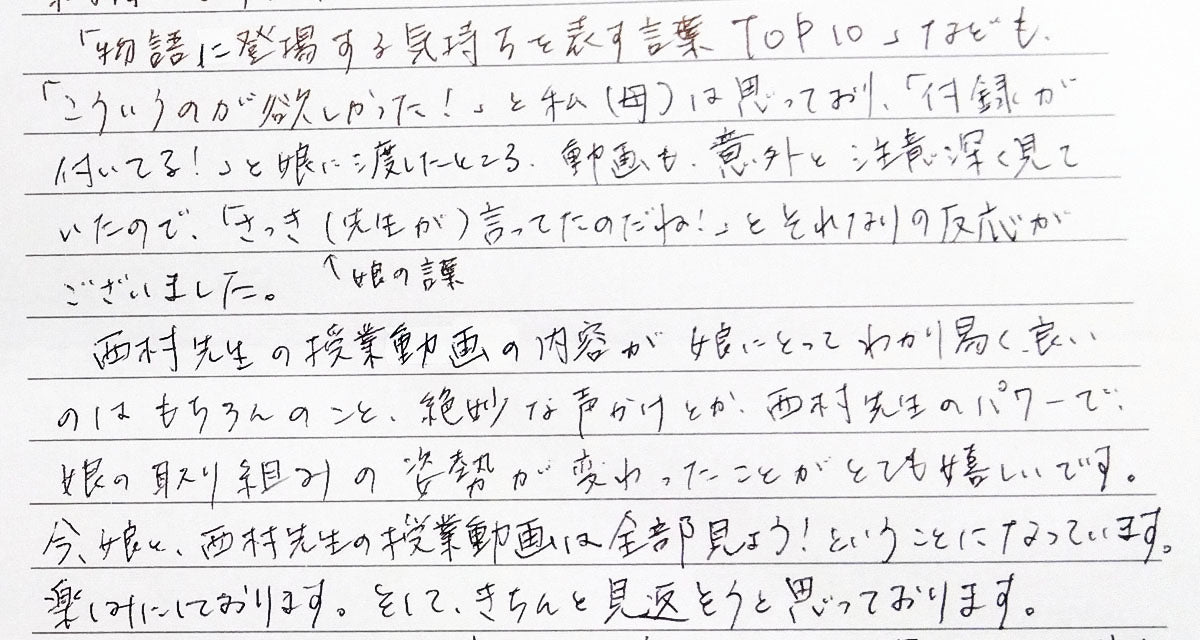 「物語に登場する気持ちを表す言葉 TOP10」なども、
「こういうのが欲しかった!」と私(母)は思っており、「付録が
付いてる!」と娘に渡したところ、動画も、意外と注意深く見て
いたので、「さっき(先生が)言ってたのだね!」とそれなりの反応が
ございました。 ↑娘の言葉
西村先生の授業動画の内容が娘にとってわかり易く、良い
のはもちろんのこと、絶妙な声かけとか、西村先生のパワーで、
娘の取り組みの姿勢が変わったことがとても嬉しいです。
今、娘と、西村先生の授業動画は全部見よう!ということになっています。
楽しみにしております。そして、きちんと見返そうと思っております。